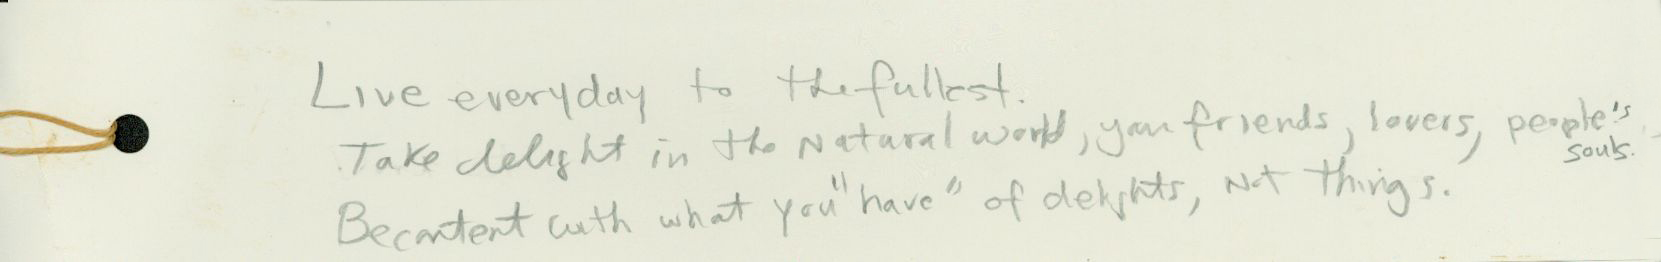 Live everyday to the fullest.
Take delight in the Natural world, your friends, lovers, people's
souls.
Be content with what you "have" of delights, Not things.